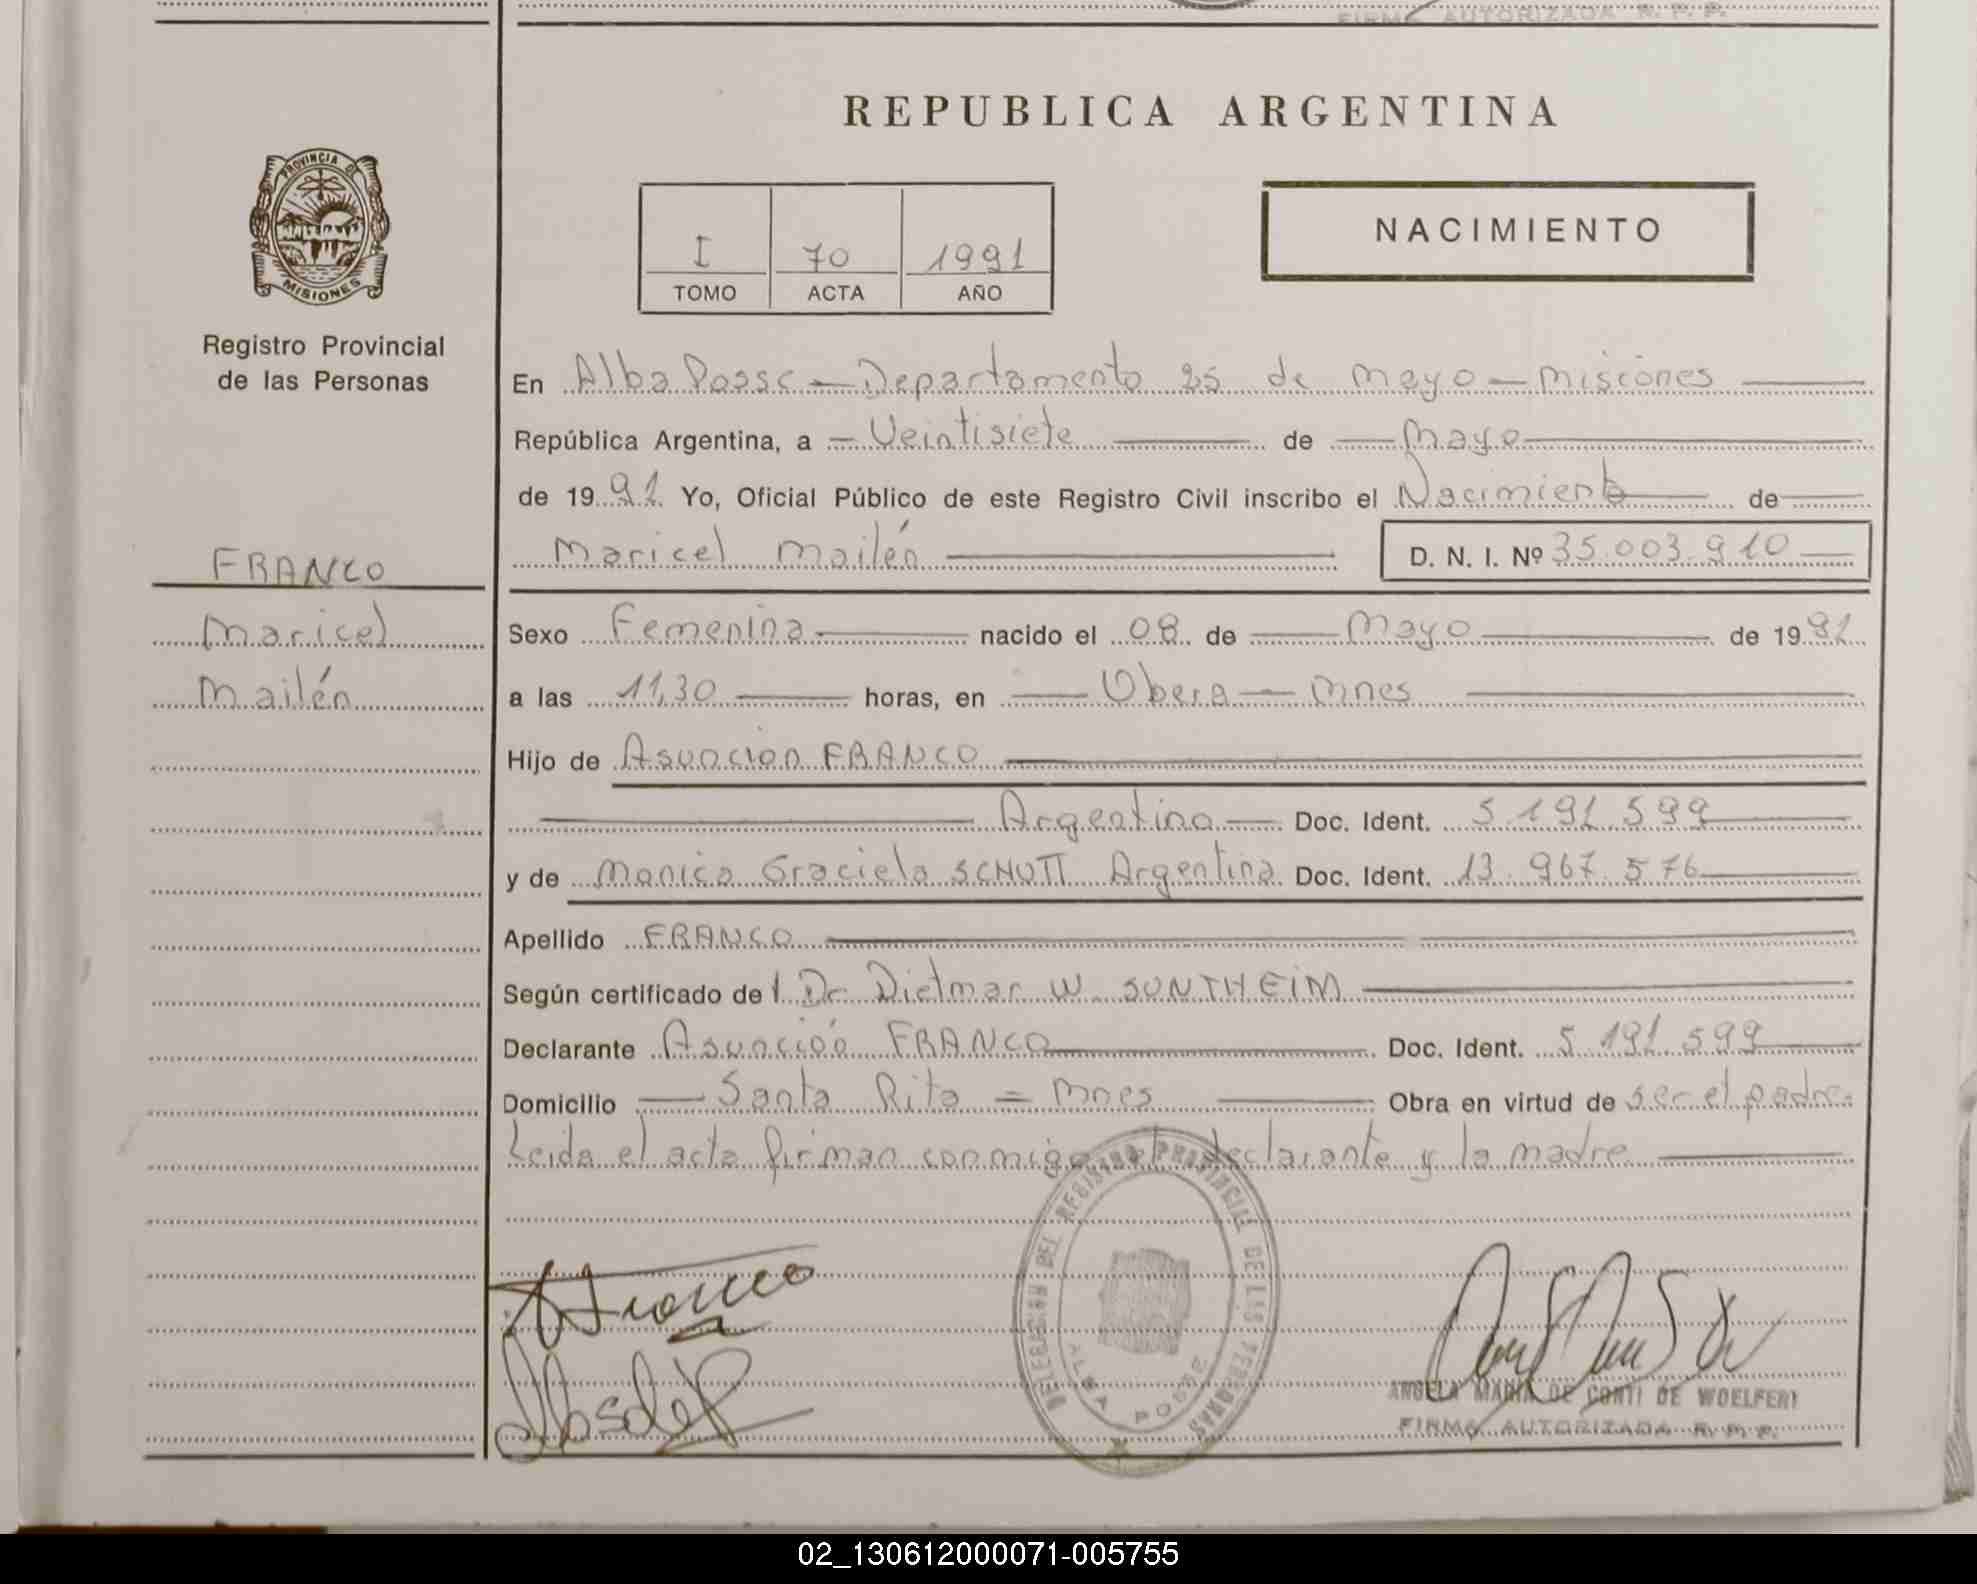 FIRMA AUTORIZADA R. P. P.
REPUBLICA ARGENTINA
PROVINCIA DE
MISIONES
Registro Provincial
de las Personas
I 70 1991
TOMO ACTA AÑO
NACIMIENTO
En Alba Posse - Departamento 25 de Mayo - Misiones
República Argentina, a Veintisiete de Mayo
de 1991 Yo, Oficial Público de este Registro Civil inscribo el Nacimiento de
Maricel Mailén D. N. I. Nº 35.003.910
FRANCO
Maricel
Mailén
Sexo Femenina nacido el 08 de Mayo de 1991
a las 11,30 horas, en Obera - Mnes
Hijo de Asuncion FRANCO
Argentina Doc. Ident. 5.191.599
y de Monica Graciela SCHUTT Argentina Doc. Ident. 13.967.576
Apellido FRANCO
Según certificado del Dr Dietmar W. SONTHEIM
Declarante Asunción FRANCO Doc. Ident. 5.191.599
Domicilio Santa Rita = Mnes Obra en virtud de ser el padre.
Leida el acta firman conmigo el declarante y la madre
DELEGACION DEL REGISTRO PROVINCIAL DE LAS PERSONAS
ALBA POSSE
AFranco
ANGELA MARIA DE CONTI DE WOELFERT
FIRMA AUTORIZADA R. P. P.
02_130612000071-005755